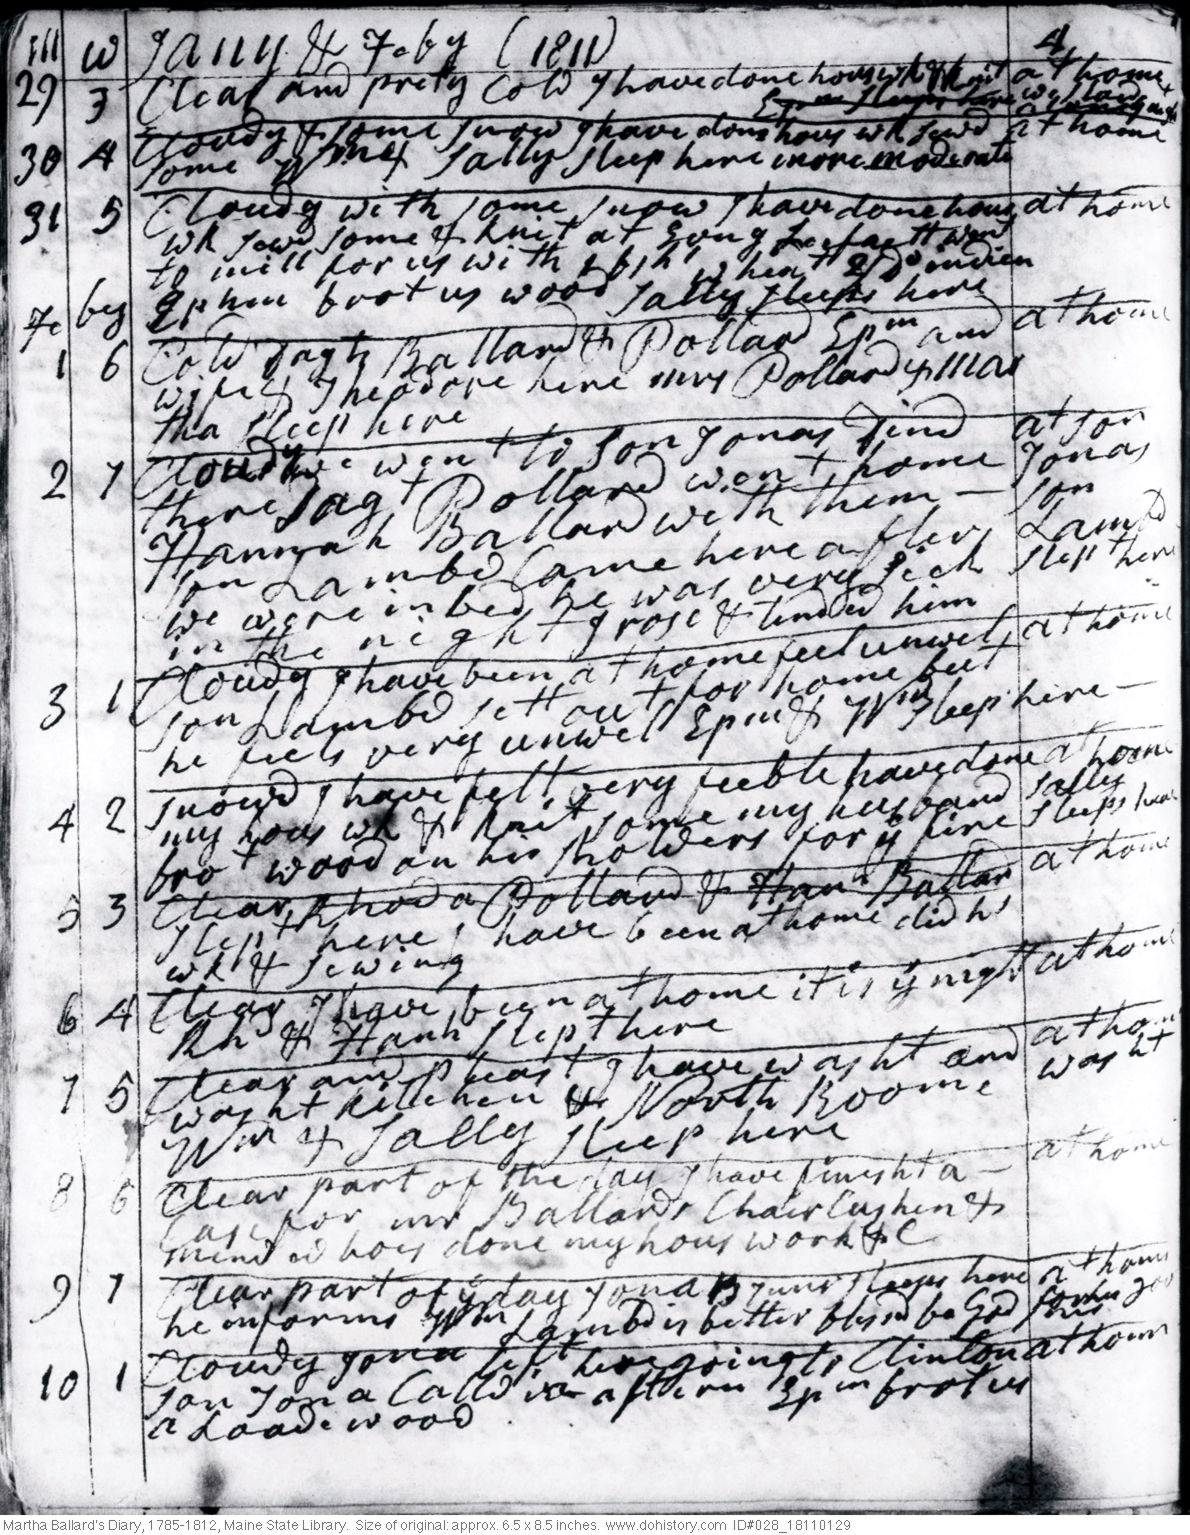 m w Jany & Feby (1811) 4
29 3 Clear and prety Cold I have done hous wk & knit at home
Epm sleeps here
30 4 Cloudy & some snow I have done hous wk sewd at home
some Wm & Sally sleep here more moderate
31 5 Cloudy with some snow I have done hous at home
wk sewd some & knit at Evng went
to mill for us with wheat & Do indien
Ephm brot us wood Sally sleeps here
Fe by
1 6 Cold Dagts Ballard & Pollard Epm and at home
wife & Theodore here mrs Pollard & Mar
tha sleep here
2 7 Cloudy we went to Son Jonas Find at son
there Dagt Pollard went home Jonas
Hannah Ballard with them — son
son Lambd Came here after Lambd
we were in bed he was very sick slept here
in the night I rose & tended him
3 1 Cloudy I have been at home feel unwel at home
son Lambd sett out for home but
he feels very unwel Epm & Wm sleep here —
4 2 snowd I have felt very feeble have done at home
my hous wk & knit some my husband Sally
brot wood on his sholders for ye fire sleeps here
5 3 Clear Rhoda Pollard & Han Ballard at home
slept here I have been at home did hs
wk & sewing
6 4 Clear I have been at home it is ye night at home
Rh & Hanh slept here
7 5 Clear and pleast I have washt and at home
washt kitchen & North Roome washt
Wm & Sally sleep here
8 6 Clear part of the day I have finisht a — at home
Case for mr Ballards Chair Cushen &
mended hois done my hous work &C
9 7 Clear part of ye day Jona B Junr sleeps here at home
he informs Wm Lambd is better blessed be God for his
10 1 Cloudy Jona left here going to Clinton at home
son Jona Calld in aftern Epm brot us
a Load wood
Martha Ballard's Diary, 1785-1812, Maine State Library. Size of original: approx. 6.5 x 8.5 inches. www.dohistory.com ID#028_18110129